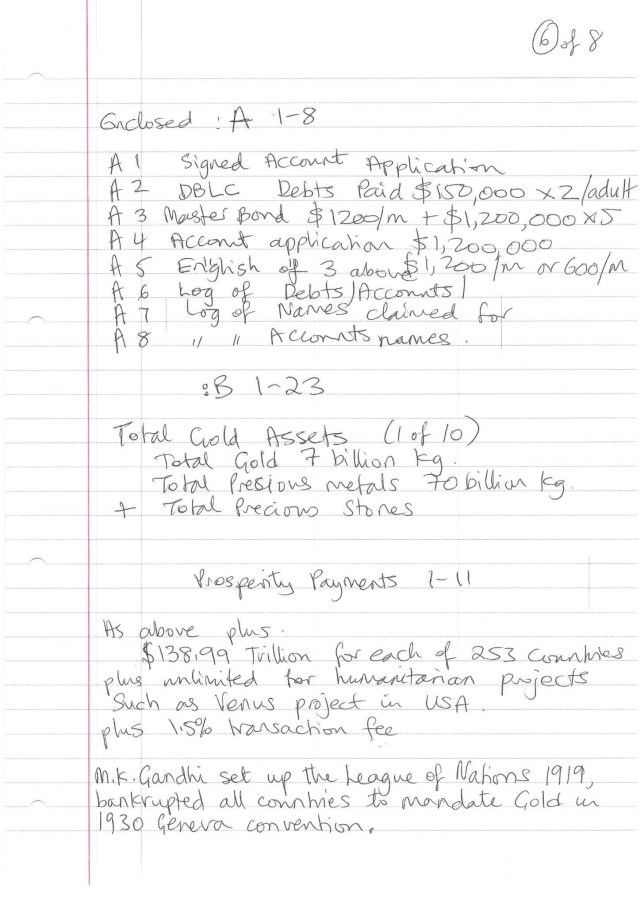 6 of 8
Enclosed : A 1-8
A 1 Signed Account Application
A 2 DBLC Debts Paid $150,000 x2/adult
A 3 Master Bond $1200/m + $1,200,000 x5
A 4 Account application $1,200,000
A 5 English of 3 above $1,200/m or 600/m
A 6 Log of Debts/Accounts/
A 7 Log of Names claimed for
A 8 " " Accounts names.
:B 1-23
Total Gold Assets (1 of 10)
Total Gold 7 billion kg.
Total Presious metals 70 billion kg.
+ Total Precious Stones
Prosperity Payments 1-11
As above plus.
$138.99 Trillion for each of 253 countries
plus unlimited for humanitarian projects
Such as Venus project in USA.
plus 1.5% transaction fee
M.K. Gandhi set up the League of Nations 1919,
bankrupted all countries to mandate Gold in
1930 Geneva convention.